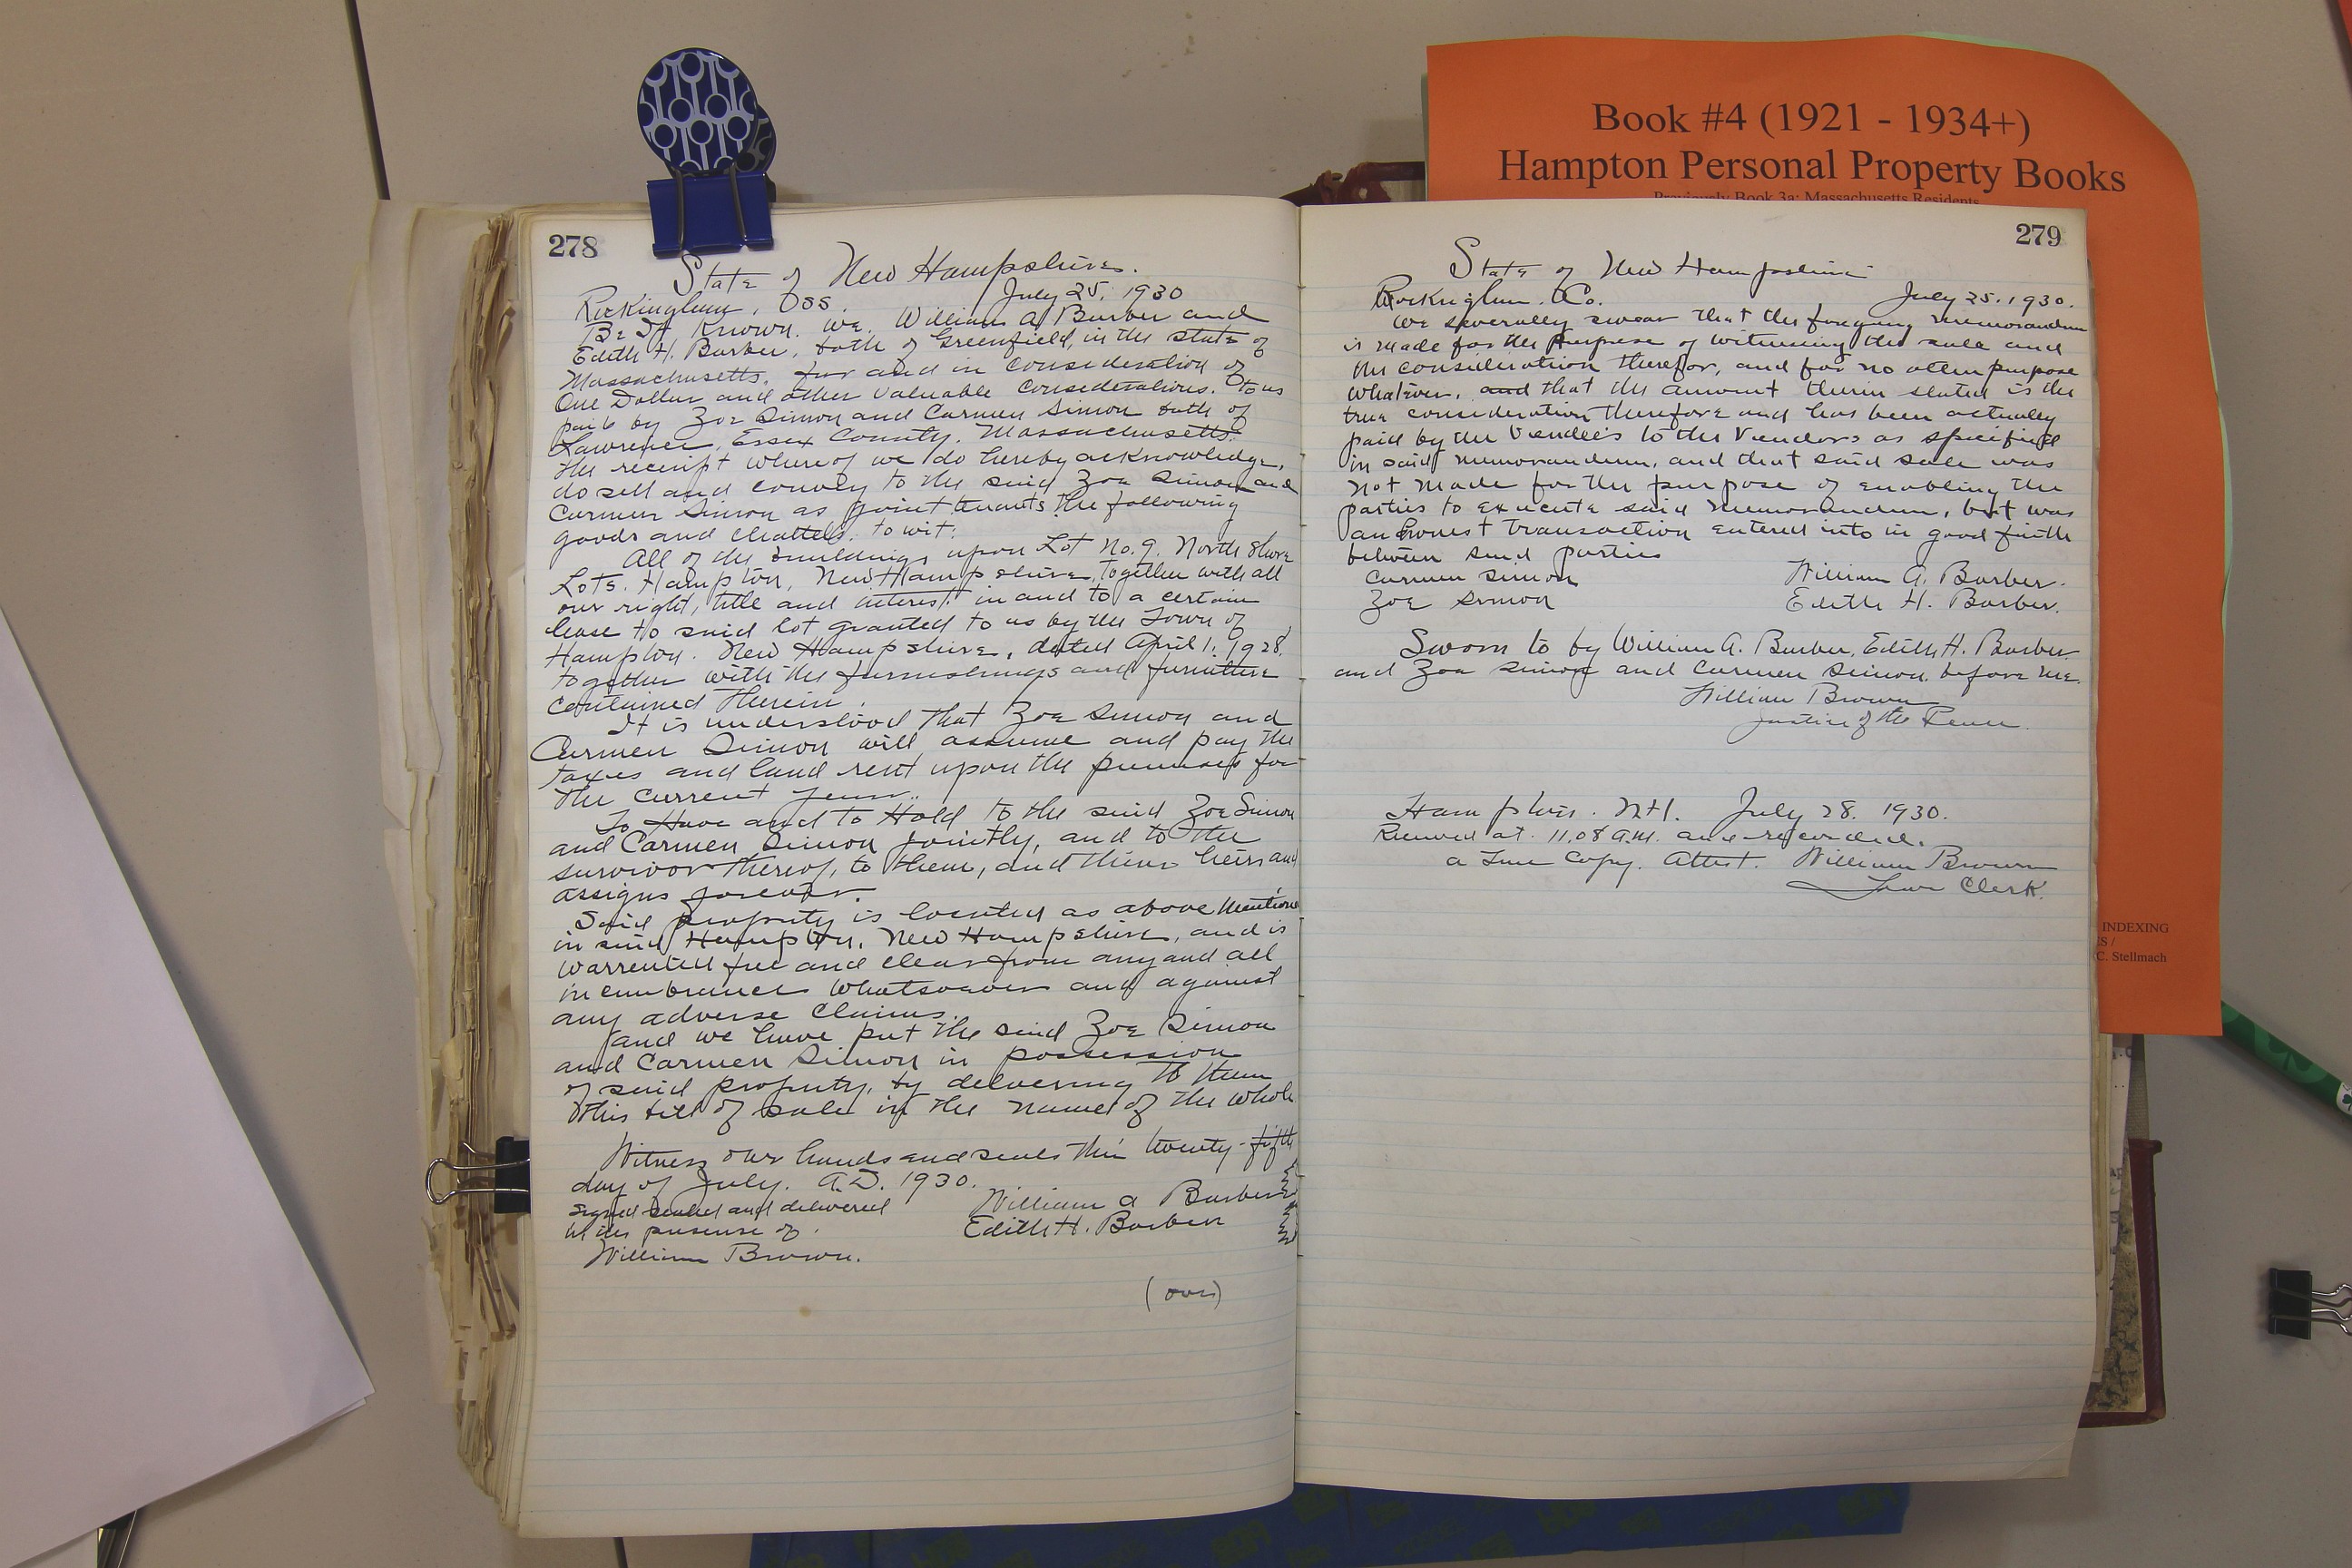 Book #4 (1921 - 1934+)
Hampton Personal Property Books
Previously Book 3a: Massachusetts Residents
INDEXING
ES /
C. Stellmach
278
State of New Hampshire.
Rockingham, SS. July 25, 1930
Be It Known. We. William A. Barber and
Edith H. Barber, both of Greenfield, in the state of
Massachusetts, for and in consideration of
One Dollar and other valuable considerations. to us
paid by Zoe Simon and Carmen Simon both of
Lawrence, Essex County. Massachusetts.
the receipt whereof we do hereby acknowledge,
do sell and convey to the said Zoe Simon and
Carmen Simon as joint tenants the following
goods and chattels. to wit:
All of the buildings upon Lot No. 9. North Shore
Lots. Hampton, New Hampshire, together with all
our right, title and interest in and to a certain
lease to said lot granted to us by the Town of
Hampton. New Hampshire, dated April 1, 1928,
together with the furnishings and furniture
contained therein.
It is understood that Zoe Simon and
Carmen Simon will assume and pay the
taxes and land rent upon the premises for
the current year.
To Have and to Hold to the said Zoe Simon
and Carmen Simon jointly, and to the
survivor thereof, to them, and their heirs and
assigns forever.
Said property is located as above mentione
in said Hampton, New Hampshire, and is
warrented free and clear from any and all
incumbrances whatsoever and against
any adverse claims.
and we have put the said Zoe Simon
and Carmen Simon in possession
of said property, by delivering to them
this bill of sale in the name of the whole
Witness our hands and seals this twenty-fifth
day of July. A.D. 1930.
Signed sealed and delivered William A Barber
in the presense of. Edith H. Barber
William Brown.
(over)
279
State of New Hampshire
Rockingham. Co. July 25. 1930.
We severally swear that the foregoing memorandum
is made for the purpose of witnessing the sale and
the consideration therefor, and for no other purpose
whatever, and that the amount therin stated is the
true consideration therefore and has been actually
paid by the Vendees to the Vendors as specified
in said memorandum, and that said sale was
not made for the purpose of enabling the
parties to execute said memorandum, but was
an honest transaction entered into in good faith
between said parties
Carmen Simon William A. Barber.
Zoe Simon Edith H. Barber.
Sworn to by William A. Barber, Edith H. Barber
and Zoe Simon and Carmen Simon, before me.
William Brown
Justice of the Peace
Hampton. N.H. July 28. 1930.
Received at 11.08 A.M. and recorded.
a True Copy. Attest. William Brown
Town Clerk.